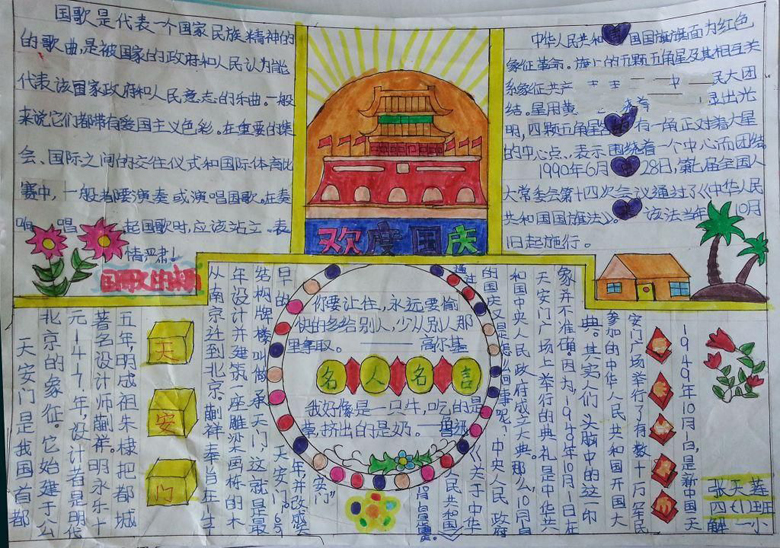 国歌是代表一个国家民族精神的
的歌曲,是被国家的政府和人民认为能
代表该国家政府和人民意志的乐曲。一般
来说它们都带有爱国主义色彩。在重要的集
会、国际之间的交往仪式和国际体育比
赛中,一般者要演奏或演唱国歌。在奏
唱
起国歌时,应该站立,表
情严肃!
欢度国庆
中华人民共和
国国旗旗面为红色,
象征革命。旗上的五颗五角星及其相互关
系象征共产
中
民大团
结。星用黄
显出光
明,四颗五角星
有一角正对着大星
的中心点,表示围绕着一个中心而团结
1990年6月
28日,第七届全国人
大常委会第十四次会议通过了《中华人民
共和国国旗法》。
该法当年
10月
1日起施行。
天安门是我国首都
北京的象征。它始建于公
元1417年,设计者是明代
著名设计师蒯祥。明永乐十
五年,明成祖朱棣把都城
天
安
门
从南京迁到北京,蒯祥奉旨在
年设计并建筑一座雕梁画栋的木
结构牌楼叫做承天门,这就是最
早的
天安门。
年并改成
安门"
你要记住,永远要愉
快的多给别人,少从别人那
里拿取。
——高尔基
名人名言
我好像是一只牛,吃的是
草,挤出的是奶。——鲁迅
1949年10月1日,是新中国天
安门广场举行了有数十万军民
参加的中华人民共和国开国大
典。其实,人们头脑中的这一印
象并不准确。因为,1949年10月1日在
天安门广场上举行的典礼是中华人民共
和国中央人民政府成立大典。那么,10月1日
的国庆又是怎么回事呢?
中央人民政府
《关于中华
人民共和国
张天莲
四(1)班
解一小